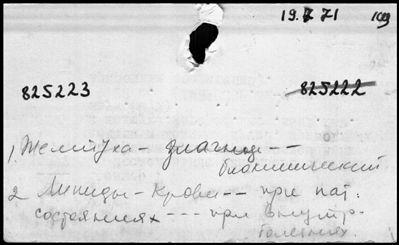 19.7 71
825223 825222
1. Желтуха - диагноз --
биохимический
2 Липиды - крови -- при пат.
состояниях --- при внутр.
болезнях.